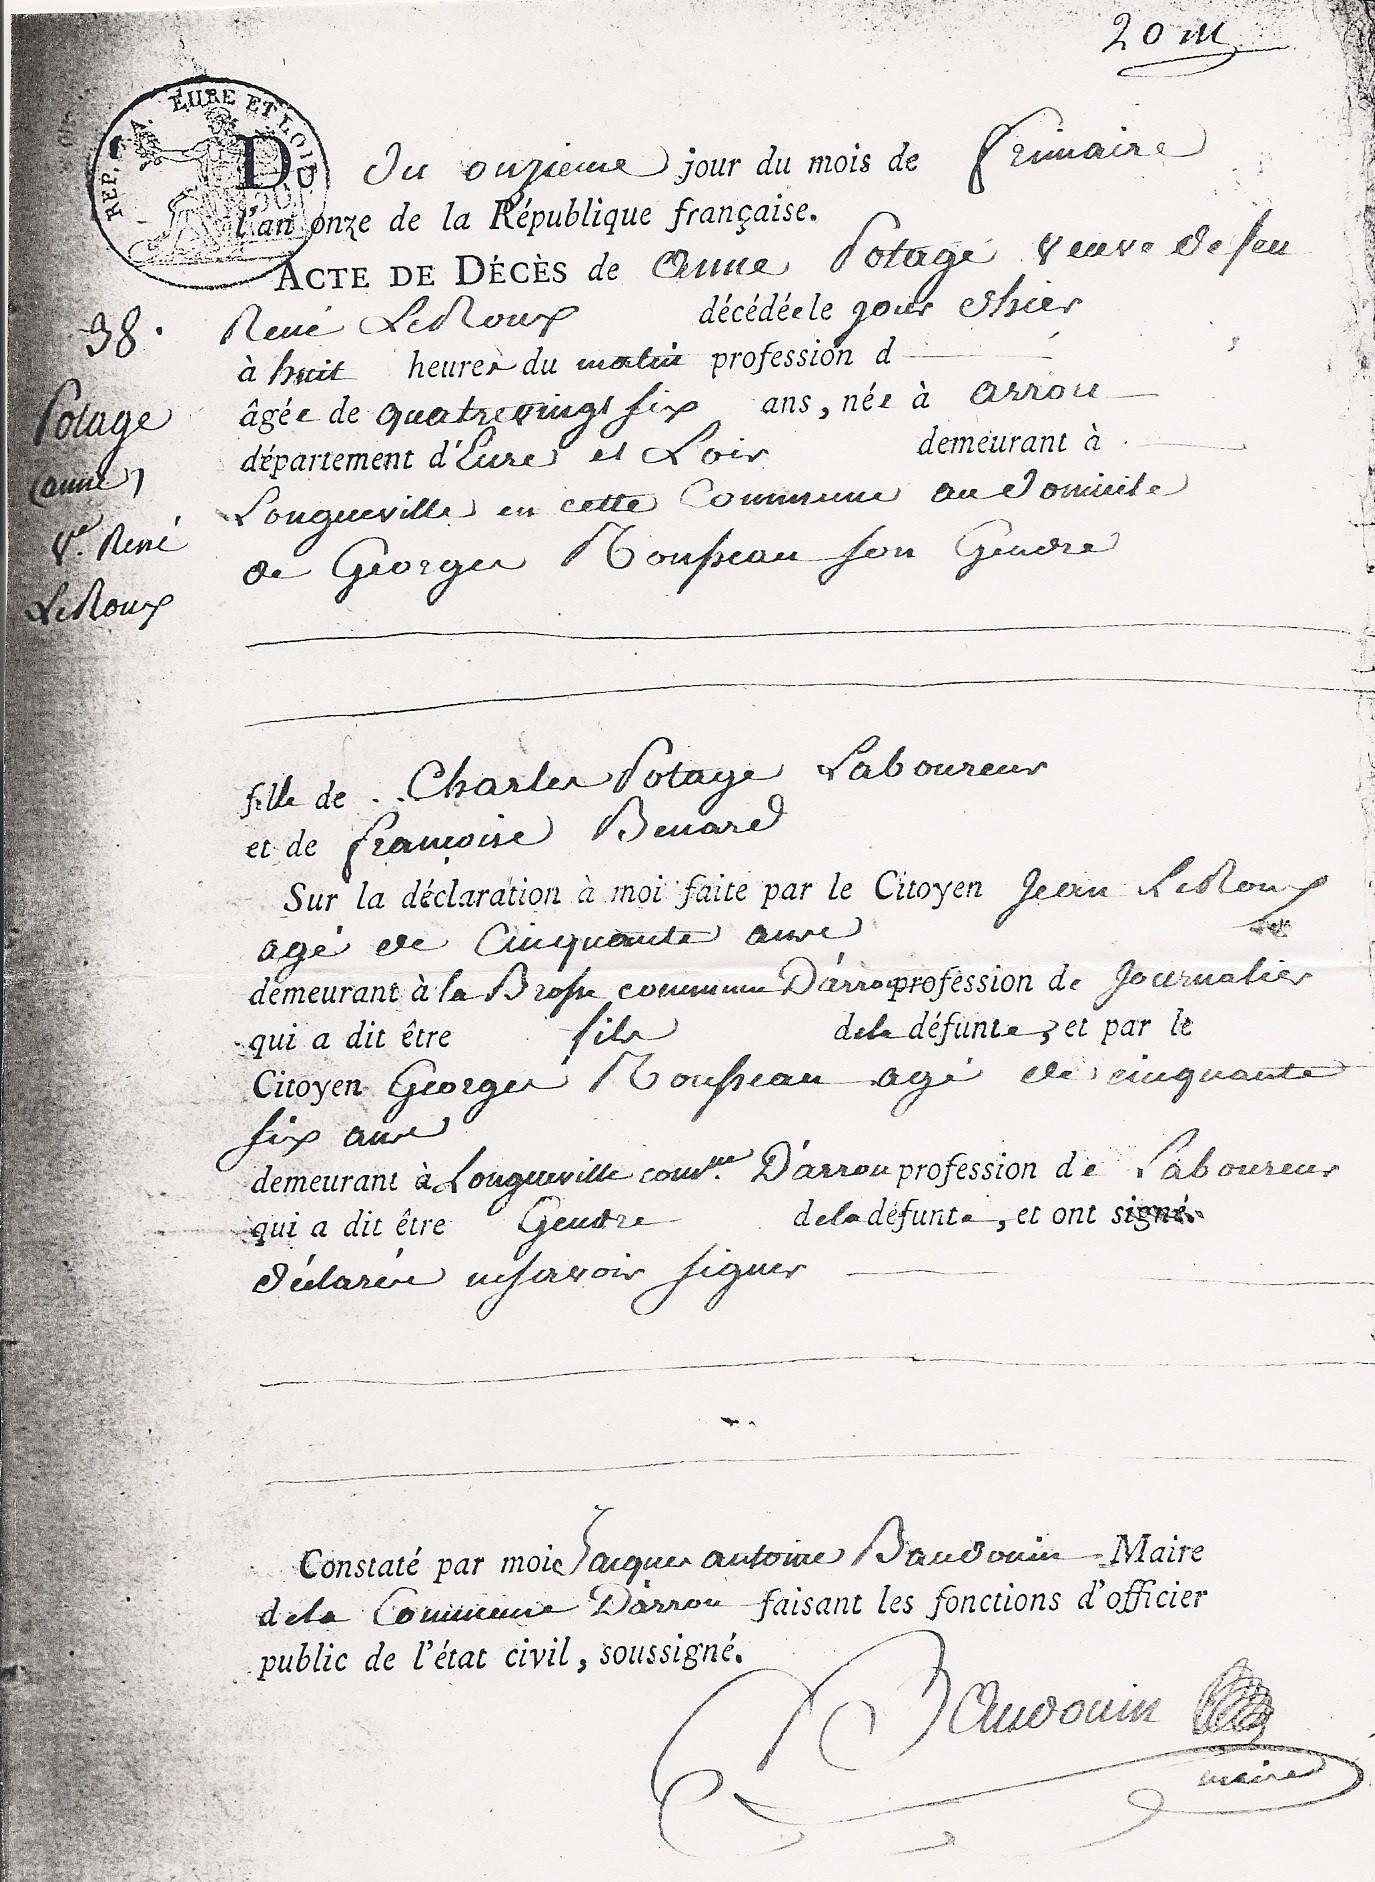 20 m
REP. FRA. EURE ET LOIR
Du Du onzieme jour du mois de frimaire
l'an onze de la République française.
ACTE DE DÉCÈS de anne Potage veuve de feu
René LeRoux décédée le jour d'hier
à huit heures du matin profession d
âgée de quatrevingt six ans, née à arrou
département d'Eure et Loir demeurant à
Longueville en cette Commune au domicile
de Georges Rousseau son Gendre
38.
Potage
(anne)
Ve. René
LeRoux
fille de Charles Potage Laboureur
et de françoise Benard
Sur la déclaration à moi faite par le Citoyen Jean LeRoux
agé de Cinquante ans
demeurant à la Brosse commune D'arrou profession de Journalier
qui a dit être fils de la défunte, et par le
Citoyen Georges Rousseau agé de cinquante
six ans
demeurant à Longueville comune. D'arrou profession de Laboureur
qui a dit être Gendre de la défunte, et ont signé.
déclarée ne savoir signer
Constaté par moi Jacques antoine Baudouin Maire
de la Commune D'arrou faisant les fonctions d'officier
public de l'état civil, soussigné.
Baudouin
maire